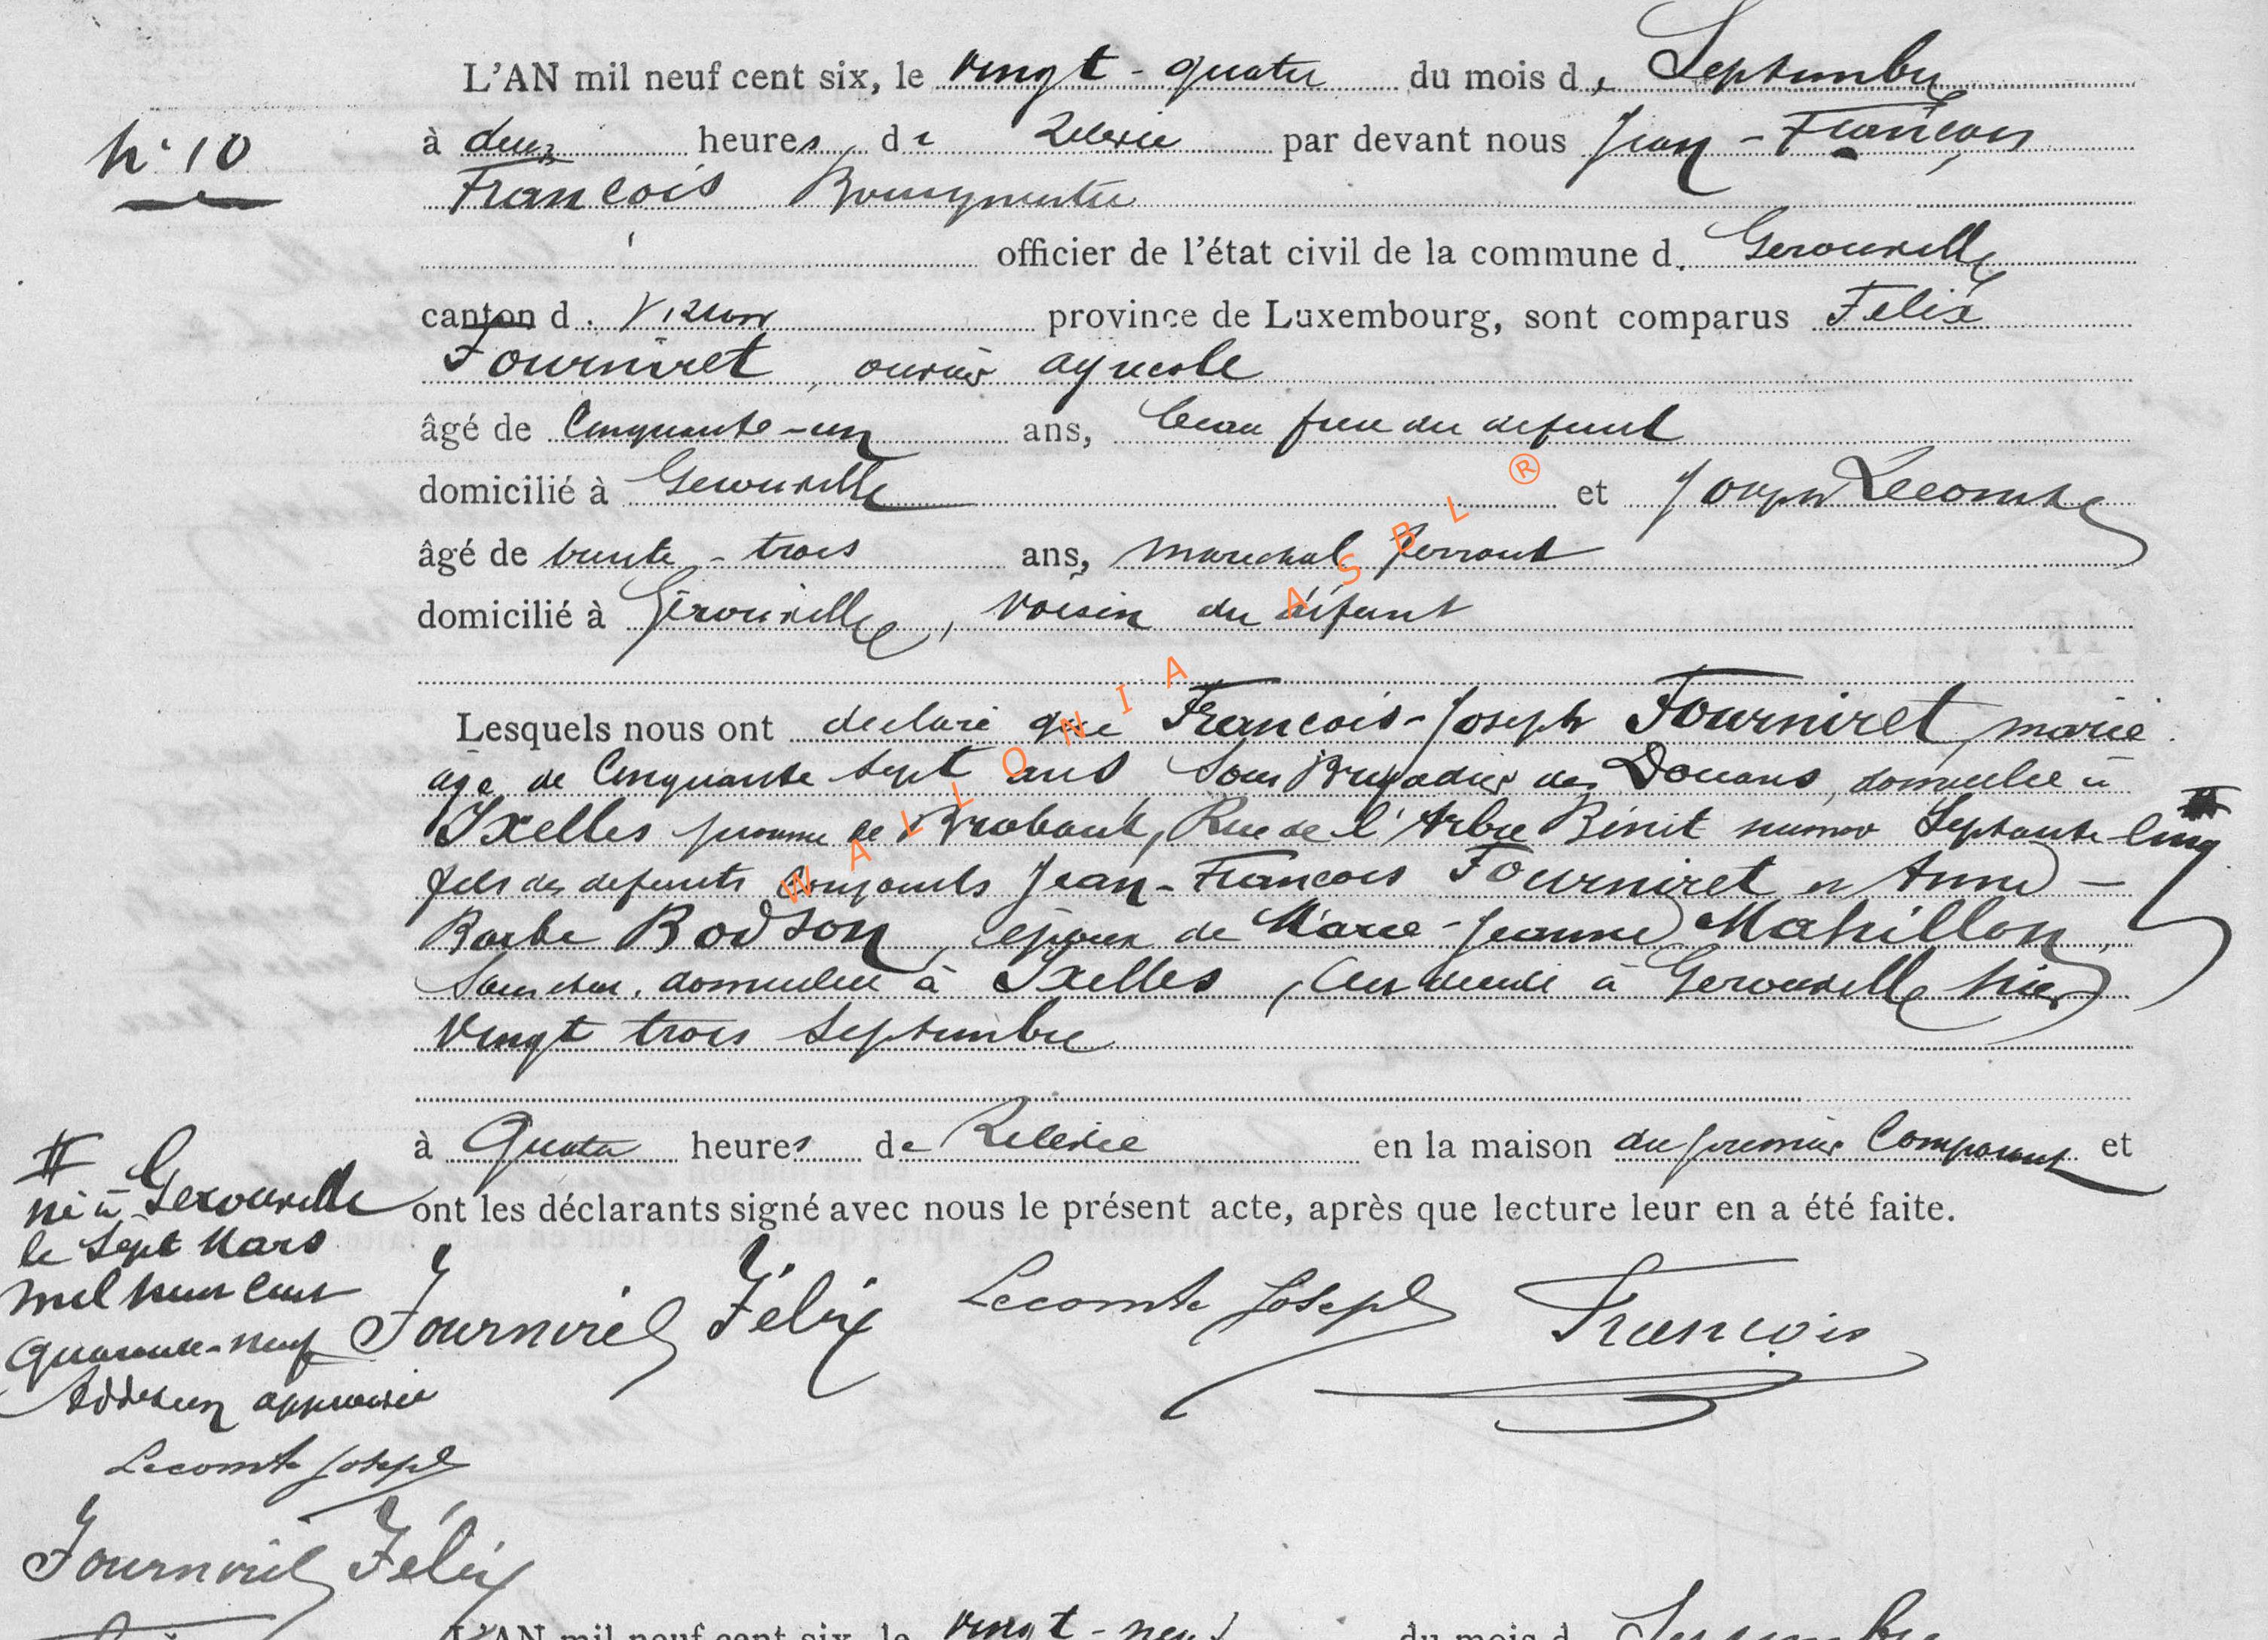 L'AN mil neuf cent six, le vingt-quatre du mois de Septembre
N° 10
à deux heures de Relevée par devant nous Jean-François
François Bourgmestre
officier de l'état civil de la commune d. Gerouville
canton d. Virton province de Luxembourg, sont comparus Félix
Fourniret, ouvrier agricole
âgé de Cinquante-un ans, beau frere du defunt
domicilié à Gerouville et Joseph Lecomte
âgé de trente-trois ans, marechal ferrant
domicilié à Gérouville, voisin du défunt
Lesquels nous ont declaré que Francois-Joseph Fourniret, marié
age de Cinquante sept ans Sous Brigadier des Douanes, domicilié à
Ixelles province de Brabant, Rue de l'Arbre Bénit numero Septante cinq
fils des defunts conjoints Jean-Francois Fourniret et Anne-
Barbe Bodson, époux de Marie-Jeanne Mahillon,
domiciliée à Ixelles, est decédé à Gerouville hier
vingt trois Septembre
à Quatre heures de Relevée en la maison du premier Comparant et
ont les déclarants signé avec nous le présent acte, après que lecture leur en a été faite.
né à Gerouville
le Sept Mars
mil huit cent
quarante-neuf
Addition approuvée
Fourniret Félix Lecomte Joseph François
Lecomte Joseph
Fourniret Félix
L'AN mil neuf cent six, le vingt-neuf du mois d Septembre
WALLONIA ASBL ®